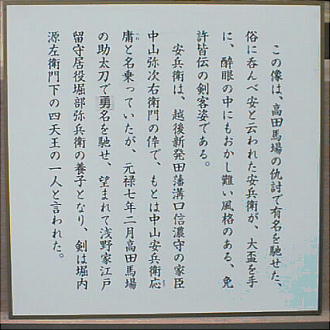 この像は、高田馬場の仇討で有名を馳せた、
俗に呑んべ安と云われた安兵衛が、大盃を手
に、酔眼の中にもおかし難い風格のある、免
許皆伝の剣客姿である。
安兵衛は、越後新発田藩溝口信濃守の家臣
中山弥次右衛門の倅で、もとは中山安兵衛応
庸と名乗っていたが、元禄七年二月高田馬場
の助太刀で勇名を馳せ、望まれて浅野家江戸
留守居役堀部弥兵衛の養子となり、剣は堀内
源左衛門下の四天王の一人と言われた。